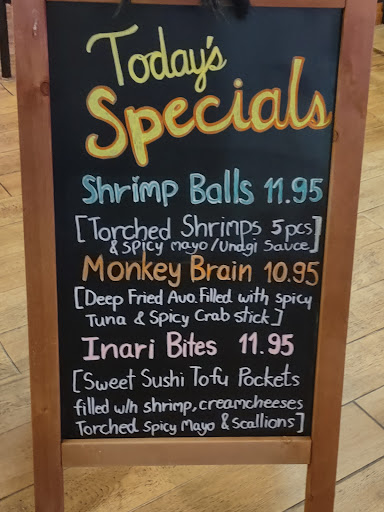 Today's
Specials
Shrimp Balls 11.95
[Torched Shrimps 5pcs
& spicy mayo/Unagi Sauce]
Monkey Brain 10.95
[Deep Fried Avo. Filled with spicy
Tuna & Spicy Crab stick]
Inari Bites 11.95
[Sweet Sushi Tofu Pockets
filled w/h shrimp, creamcheeses
Torched Spicy Mayo & scallions]